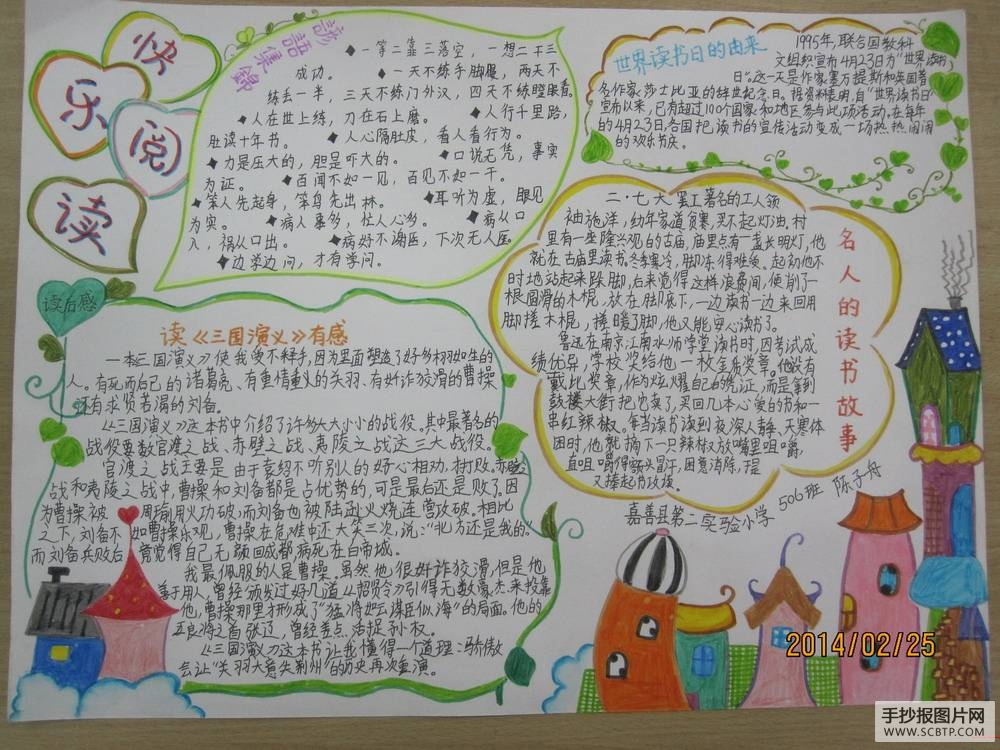 快
乐
阅
读
諺語集錦
◆一等二靠三落空，一想二干三
成功。 ◆一天不练手脚慢，两天不
练丢一半，三天不练门外汉，四天不练瞪眼看。
◆人在世上练，刀在石上磨。 ◆人行千里路，
肚读十年书。 ◆人心隔肚皮，看人看行为。
◆力是压大的，胆是吓大的。 ◆口说无凭，事实
为证。 ◆百闻不如一见，百见不如一干。
◆笨人先起身，笨鸟先出林。 ◆耳听为虚，眼见
为实。 ◆病人事多，忙人心多。 ◆病从口
入，祸从口出。 ◆病好不谢医，下次无人医
◆边学边问，才有学问。
世界读书日的由来
1995年，联合国教科
文组织宣布4月23日为"世界读书
日"。这一天是作家塞万提斯和英国著
名作家莎士比亚的辞世纪念日。据资料表明，自"世界读书日"
宣布以来，已有超过100个国家和地区参与此项活动。在每年
的4月23日，各国把读书的宣传活动变成一场热热闹闹
的欢乐节庆。
名人的读书故事
二·七大罢工著名的工人领
袖施洋，幼年家道贫寒，买不起灯油，村
里有一座隆兴观的古庙，庙里点有一盏长明灯，他
就在古庙里读书。冬季寒冷，脚冻得难受。起初他不
时地站起来跺脚，后来觉得这样浪费间，便削了一
根圆滑的木棍，放在脚底下，一边读书一边来回用
脚搓木棍，搓暖了脚，他又能安心读书了。
鲁迅在南京江南水师学堂读书时，因考试成
绩优异，学校奖给他一枚金质奖章。他没有
戴此奖章，作为炫耀自己的凭证，而是拿到
鼓楼大街把它卖了，买回几本心爱的书和一
串红辣椒。每当读书读到夜深人静、天寒体
困时，他就摘下一只辣椒放嘴里咀嚼，
直咀嚼得额头冒汗，困意消除，
又捧起书攻读。
嘉善县第二实验小学 506班 陈子舟
读后感
读《三国演义》有感
一本《三国演义》使我爱不释手，因为里面塑造了好多栩栩如生的
人。有死而后已的诸葛亮、有重情重义的关羽、有奸诈狡滑的曹操
还有求贤若渴的刘备。
《三国演义》这本书中介绍了许多大大小小的战役。其中最著名的
战役要数官渡之战、赤壁之战、夷陵之战这三大战役。
官渡之战主要是由于袁绍不听别人的好心相劝，打败。赤壁之
战和夷陵之战中，曹操和刘备都是占优势的，可是最后还是败了。因
为曹操被周瑜用火功破，而刘备也被陆逊火烧连营攻破。相比
之下，刘备不如曹操乐观，曹操在危难中还大笑三次，说："北方还是我的"。
而刘备兵败后竟觉得自己无颜回成都，病死在白帝城。
我最佩服的人是曹操。虽然他很奸诈狡滑，但是他
善于用人，曾经颁发过好几道《招贤令》，引得无数豪杰来投靠
他，曹操那里才形成了"猛将如云，谋臣似海"的局面。他的
五良将之首张辽，曾经差点活捉孙权。
《三国演义》这本书让我懂得一个道理：骄傲
会让"关羽大意失荆州"的历史再次重演。
2014/02/25
手抄报图片网
WWW.SCBTP.COM